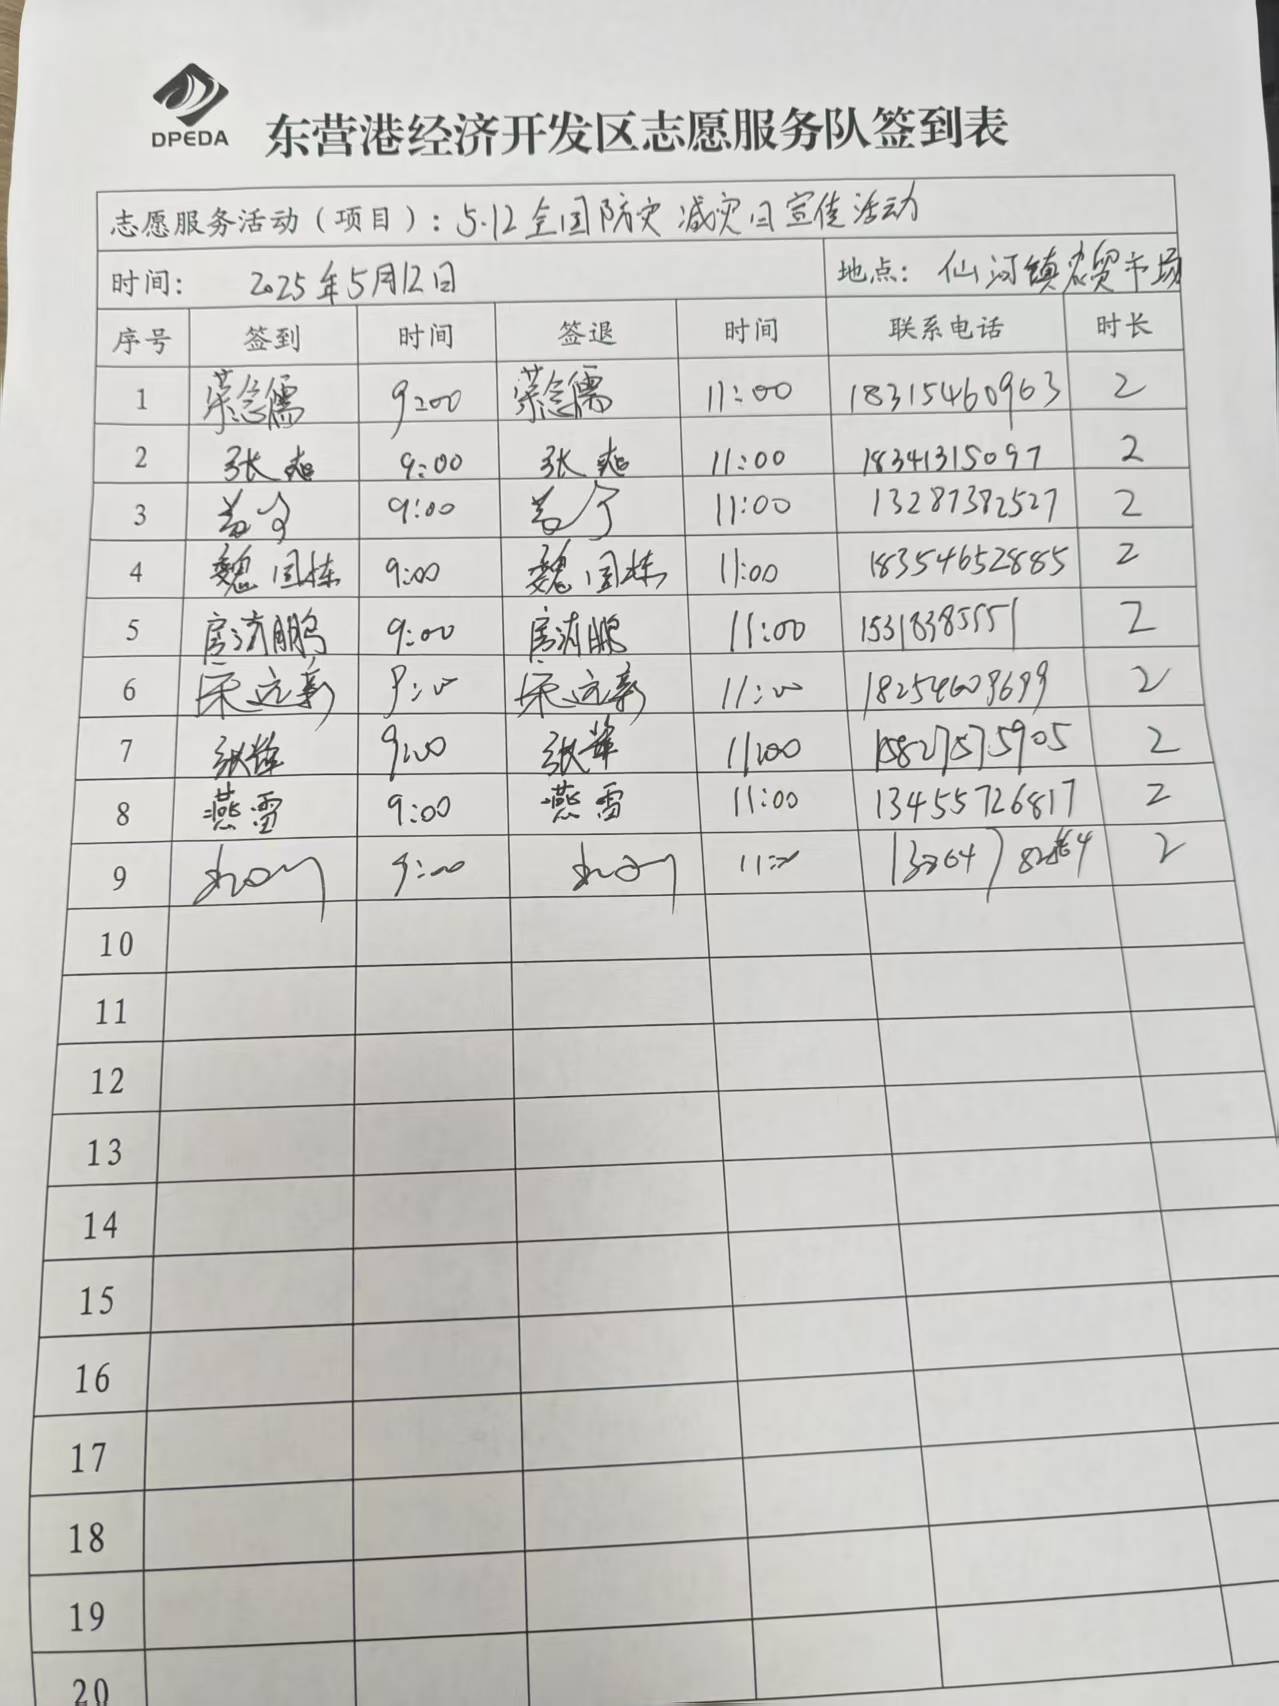 DPEDA
东营港经济开发区志愿服务队签到表
志愿服务活动（项目）：5.12全国防灾减灾日宣传活动
时间： 2025年5月12日 地点： 仙河镇农贸市场
序号 签到 时间 签退 时间 联系电话 时长
1 荣念儒 9:00 荣念儒 11:00 18315460963 2
2 张 9:00 张 11:00 18341315097 2
3 9:00 11:00 13287382527 2
4 魏国栋 9:00 魏国栋 11:00 18354652885 2
5 房涛鹏 9:00 房涛鹏 11:00 15318385551 2
6 宋远新 9:00 宋远新 11:00 18254609699 2
7 张峰 9:00 张峰 11:00 15827575905 2
8 燕雪 9:00 燕雪 11:00 13455726817 2
9 9:00 11:00 2
10
11
12
13
14
15
16
17
18
19
20